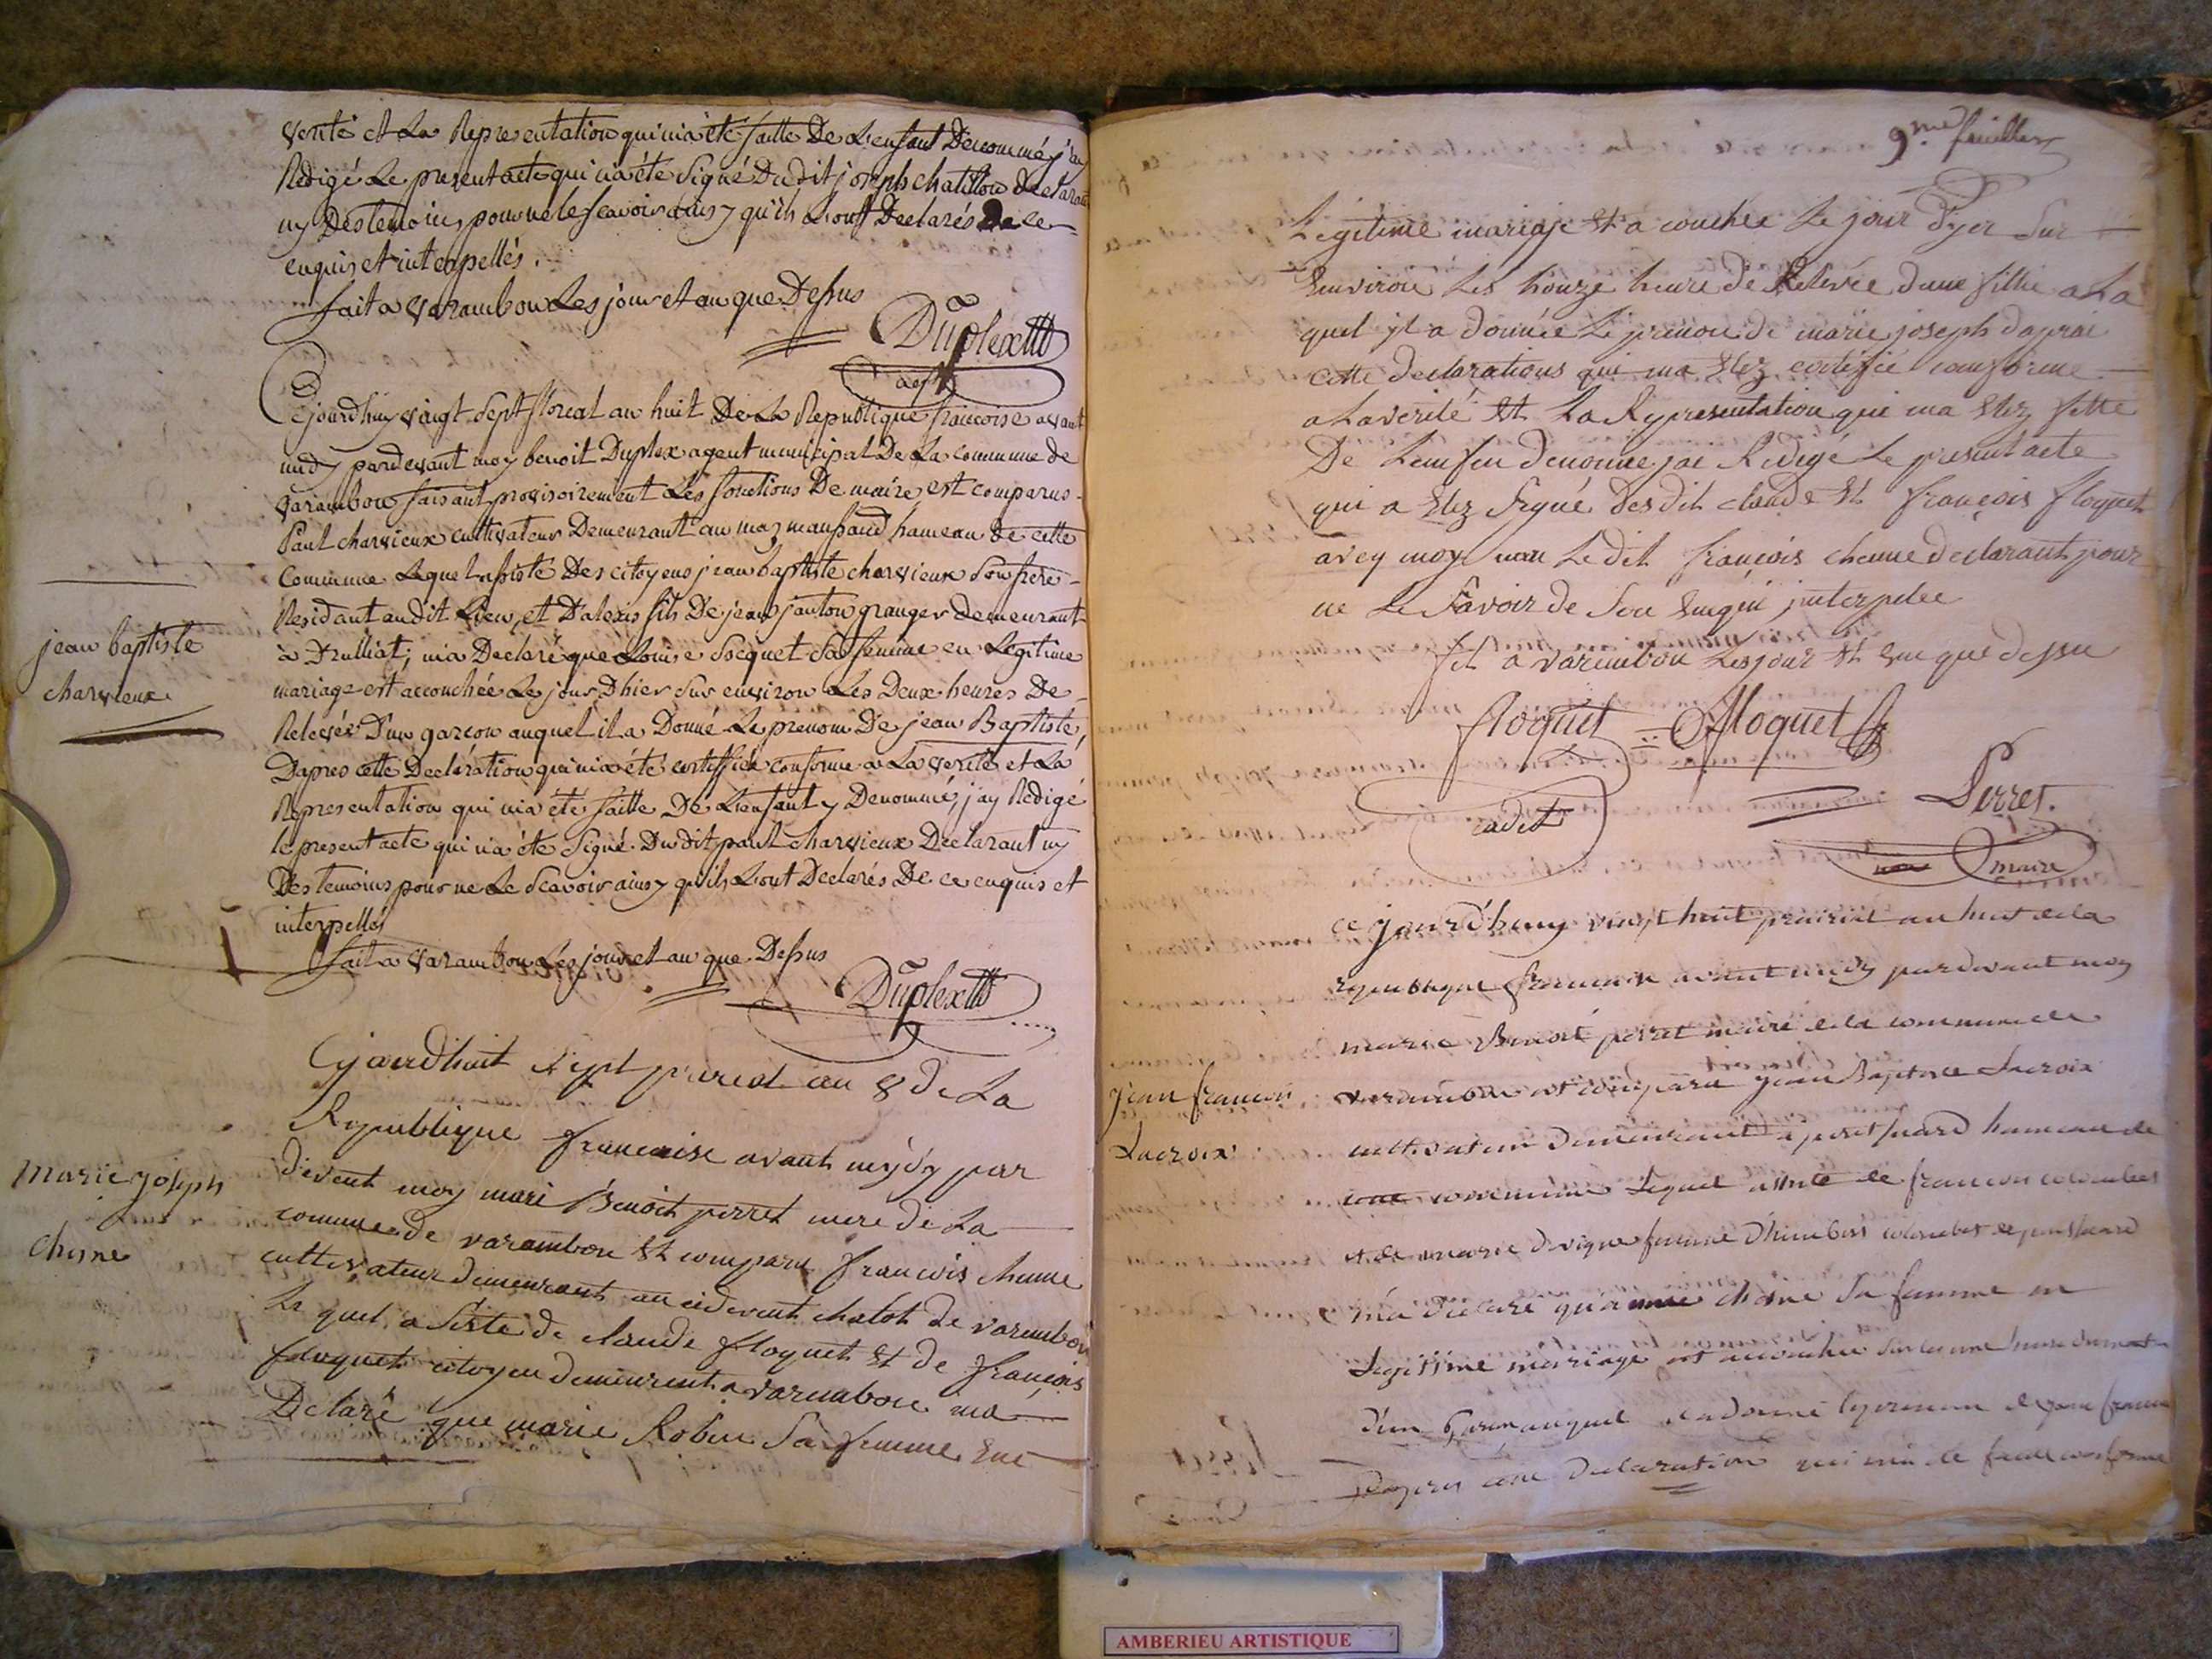 verité et La Representation qui m'a été faitte De L'enfant Denommé j'ay
Redigé Le present acte qui n'a été signé Dudit joseph chatillon Declarant
ny Des temoins pour ne le sçavoir ainsy qu'ils L'ont Declarés De ce
enquis et interpellés.
fait a varambon Les jour et an que Dessus
Duplex
agt
Cejourdhuy vingt sept floreal an huit De La Republique francoise avant
midy pardevant moy benoit Duplex agent municipal De La commune de
varambon faisant provisoirement Les fonctions De maire est comparus
Paul charvieux cultivateur Demeurant au maz maussand hameau de cette
Commune Lequel assisté Des citoyens jean baptiste charvieux son frere
Residant audit Lieu, et D'alexis fils De jean janton granger demeurant
à Drulliat; m'a Declaré que Louise Socquet sa femme en Legitime
mariage est accouchée Le jour Dhier sur environ Les Deux heures De
Relevée D'un garcon auquel il a Donné Le prenom De jean Baptiste,
D'apres cette Declaration qui m'a été certiffiée conforme a La verité et La
Representation qui m'a été faitte De L'enfant y Denommé, j'ay Redigé
le present acte qui n'a été Signé Dudit paul charvieux Declarant ny
Des temoins pour ne Le Scavoir ainsy qu'ils L'ont Declarés De ce enquis et
interpellés
fait a varambon Les jour et an que Dessus
Duplex
jean baptiste
charvieux
Cejourdhuit sept prerial an 8 de La
Republique francaise avant mydy par
devent moy mari Benoit perret mere de La
comune de varambon Et comparu francois chenne
cultivateur demeurant au cidevent chatot de varembon
Le quel a siste de claude floquet Et de francois
floquet citoyen demeurent a varembon ma
Declaré que marie Robin Sa femme Ene
marie joseph
chesne
9.me feuillet
Legitime mariaje Et a couchee Le jour Dyer Sur
Environ Les honze heure de Relevée dune fillie a La
quel yl a donnée Le prenon de marie joseph daprai
cette declarations qui ma Etez certifié conforme
a La verité Et La Representation qui ma Etez fette
De Lenfen denomee jai Redigé Le present acte
qui a Etez signé des dit claude Et francois floquet
avey moy non Le dit francois chenne declarant pour
ne Le savoir de Son Enqui jnterpelee
fet a varembon Les jour Et Em que dessu
floquet floquet
cadet
Perret.
maire
ce jourd'huy vingt huit prairial an huit de la
republique francaise avant midy pardevant moy
marie Benoit perret maire de la commune de
varambon est comparu jean Baptiste Lacroix
cultivateur demeurant a pont suard hameau de
commune Lequel assisté de francois colombet
et de marie devigne femme D'himbert colombet de pont suard
m'a declaré qu'anne chane sa famme en
Legitime mariage est accouchée sur les une heure du mat
d'un Garcon auquel il a donné le prenom de jean francois
Dapres cette Declaration qui m'a été faitte conforme
jean francois
Lacroix
AMBERIEU ARTISTIQUE